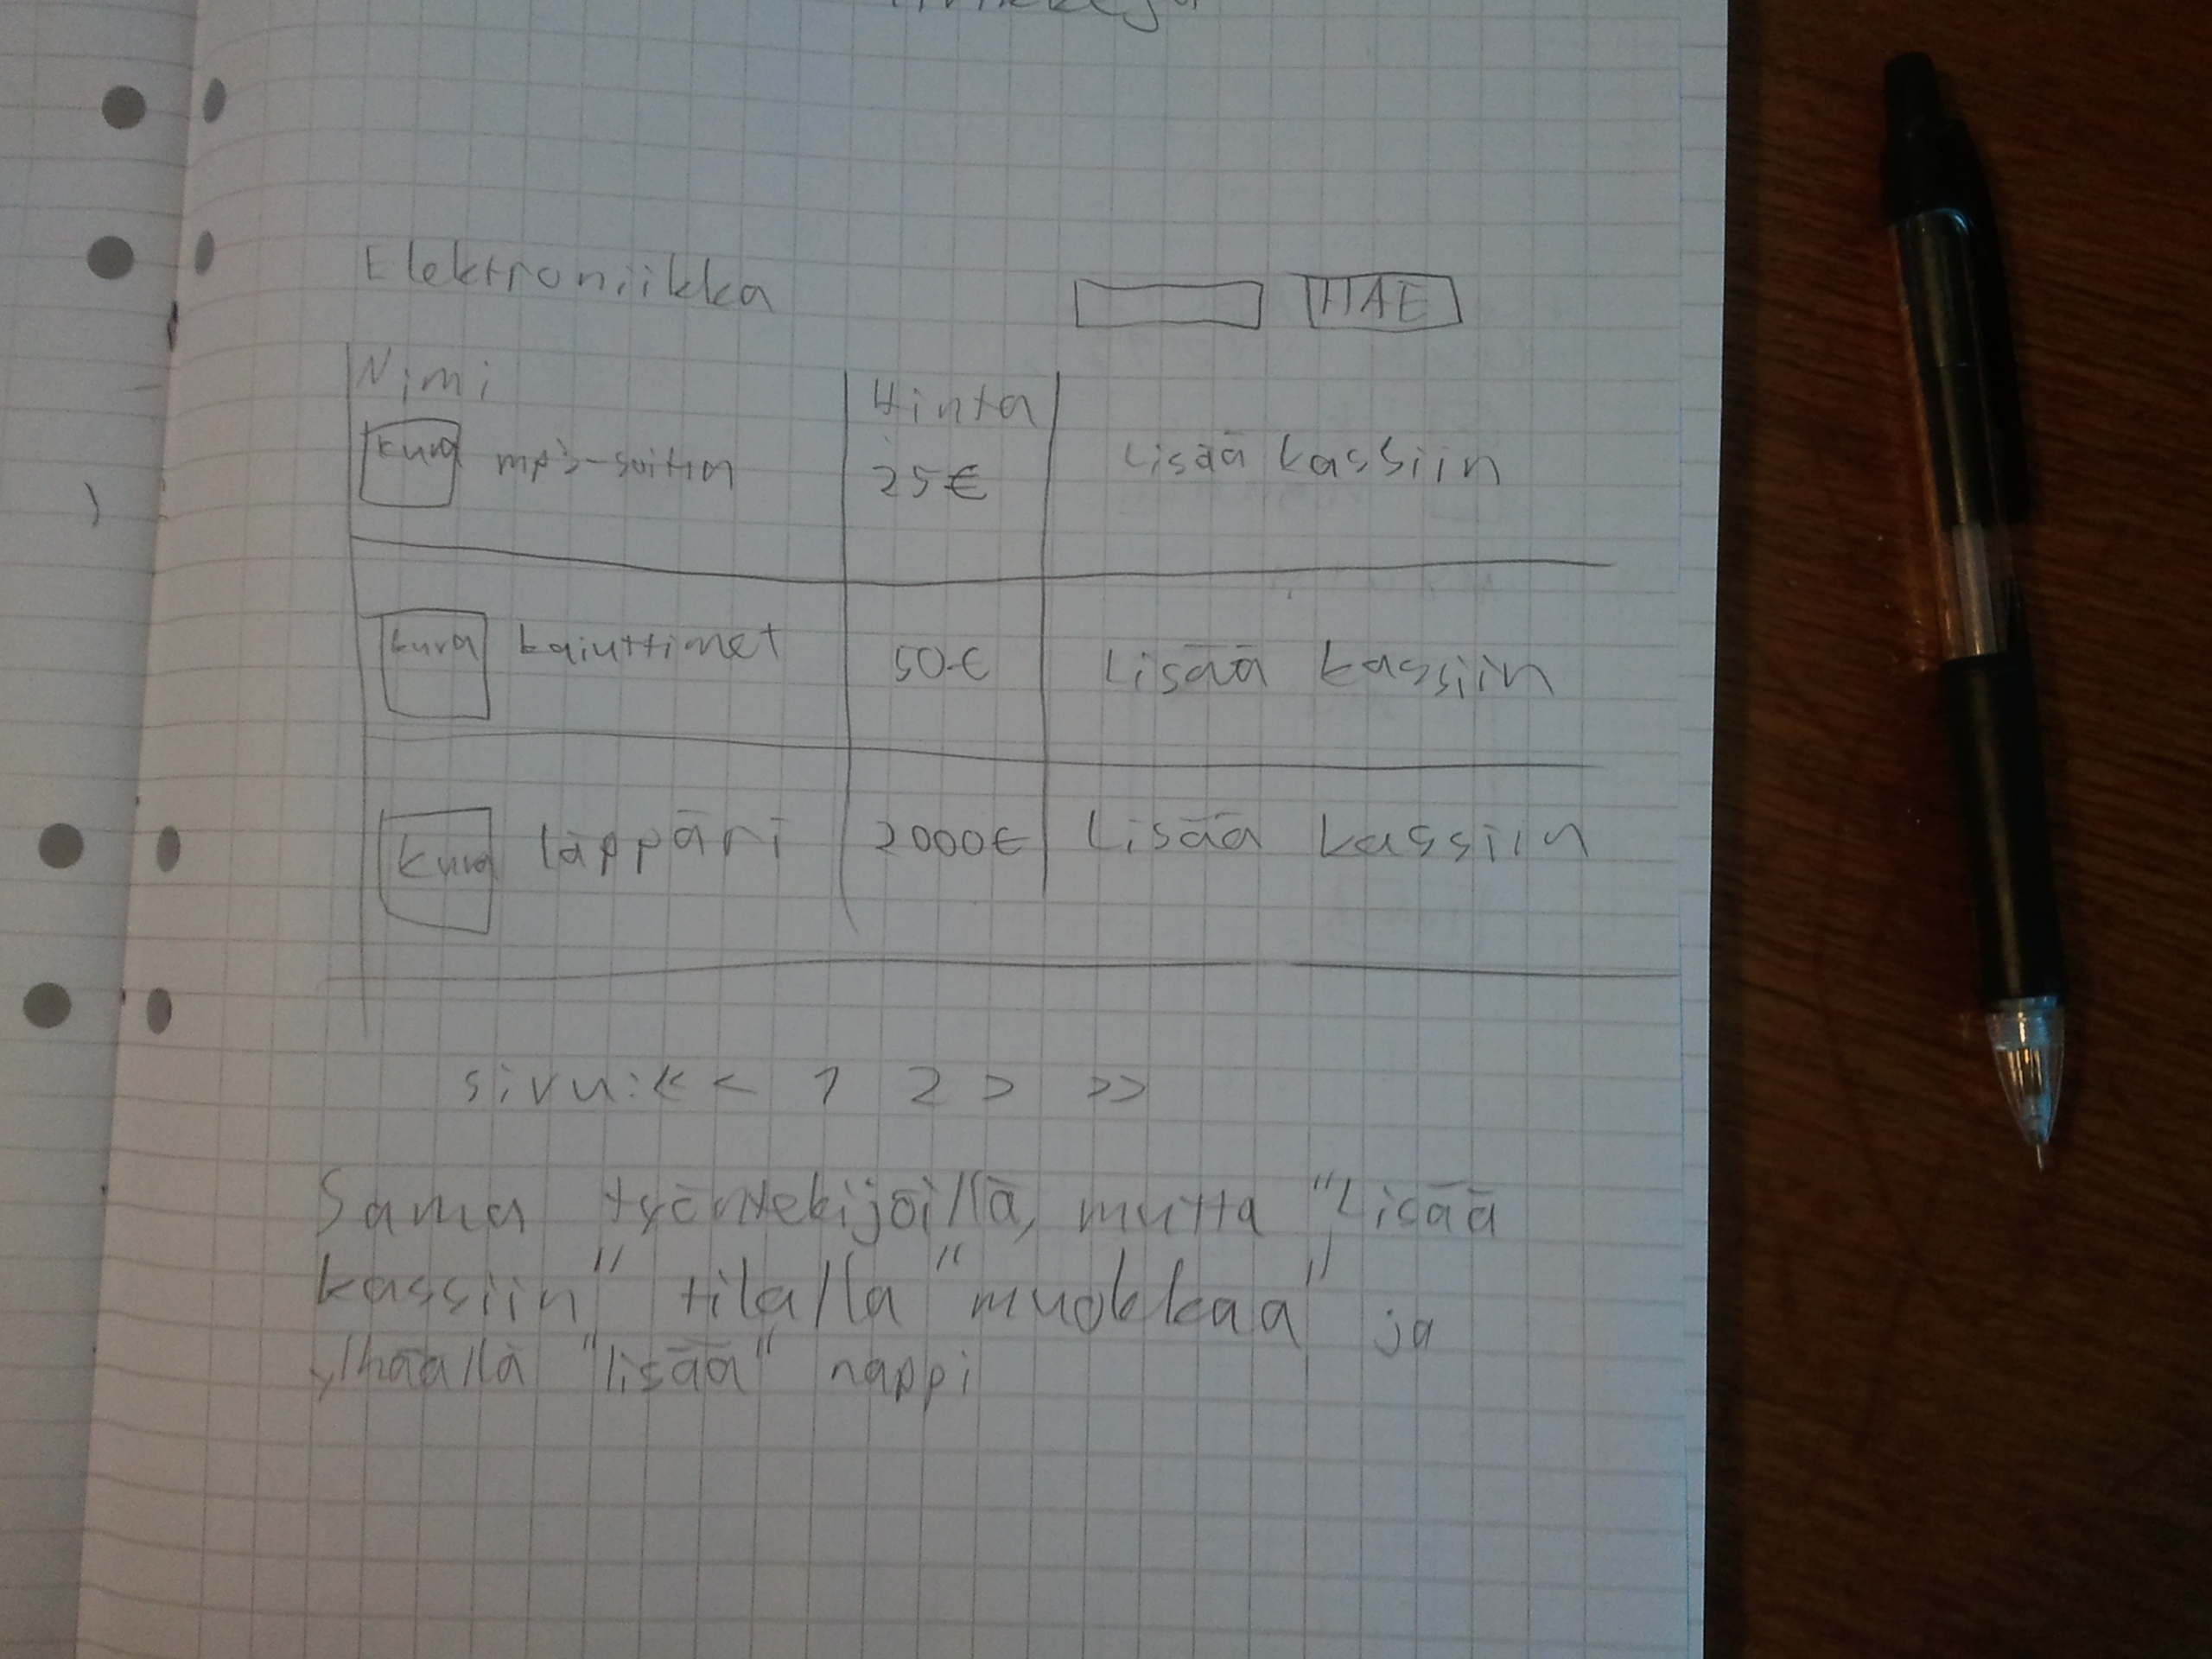 Elektroniikka HAE
Nimi Hinta
kuva mp3-soitin 25€ Lisää kassiin
kuva kaiuttimet 50€ Lisää kassiin
kuva läppäri 2000€ Lisää kassiin
sivu: << < 1 2 > >>
Sama työntekijöillä, mutta "Lisää
kassiin" tilalla "muokkaa" ja
ylhäällä "lisää" nappi